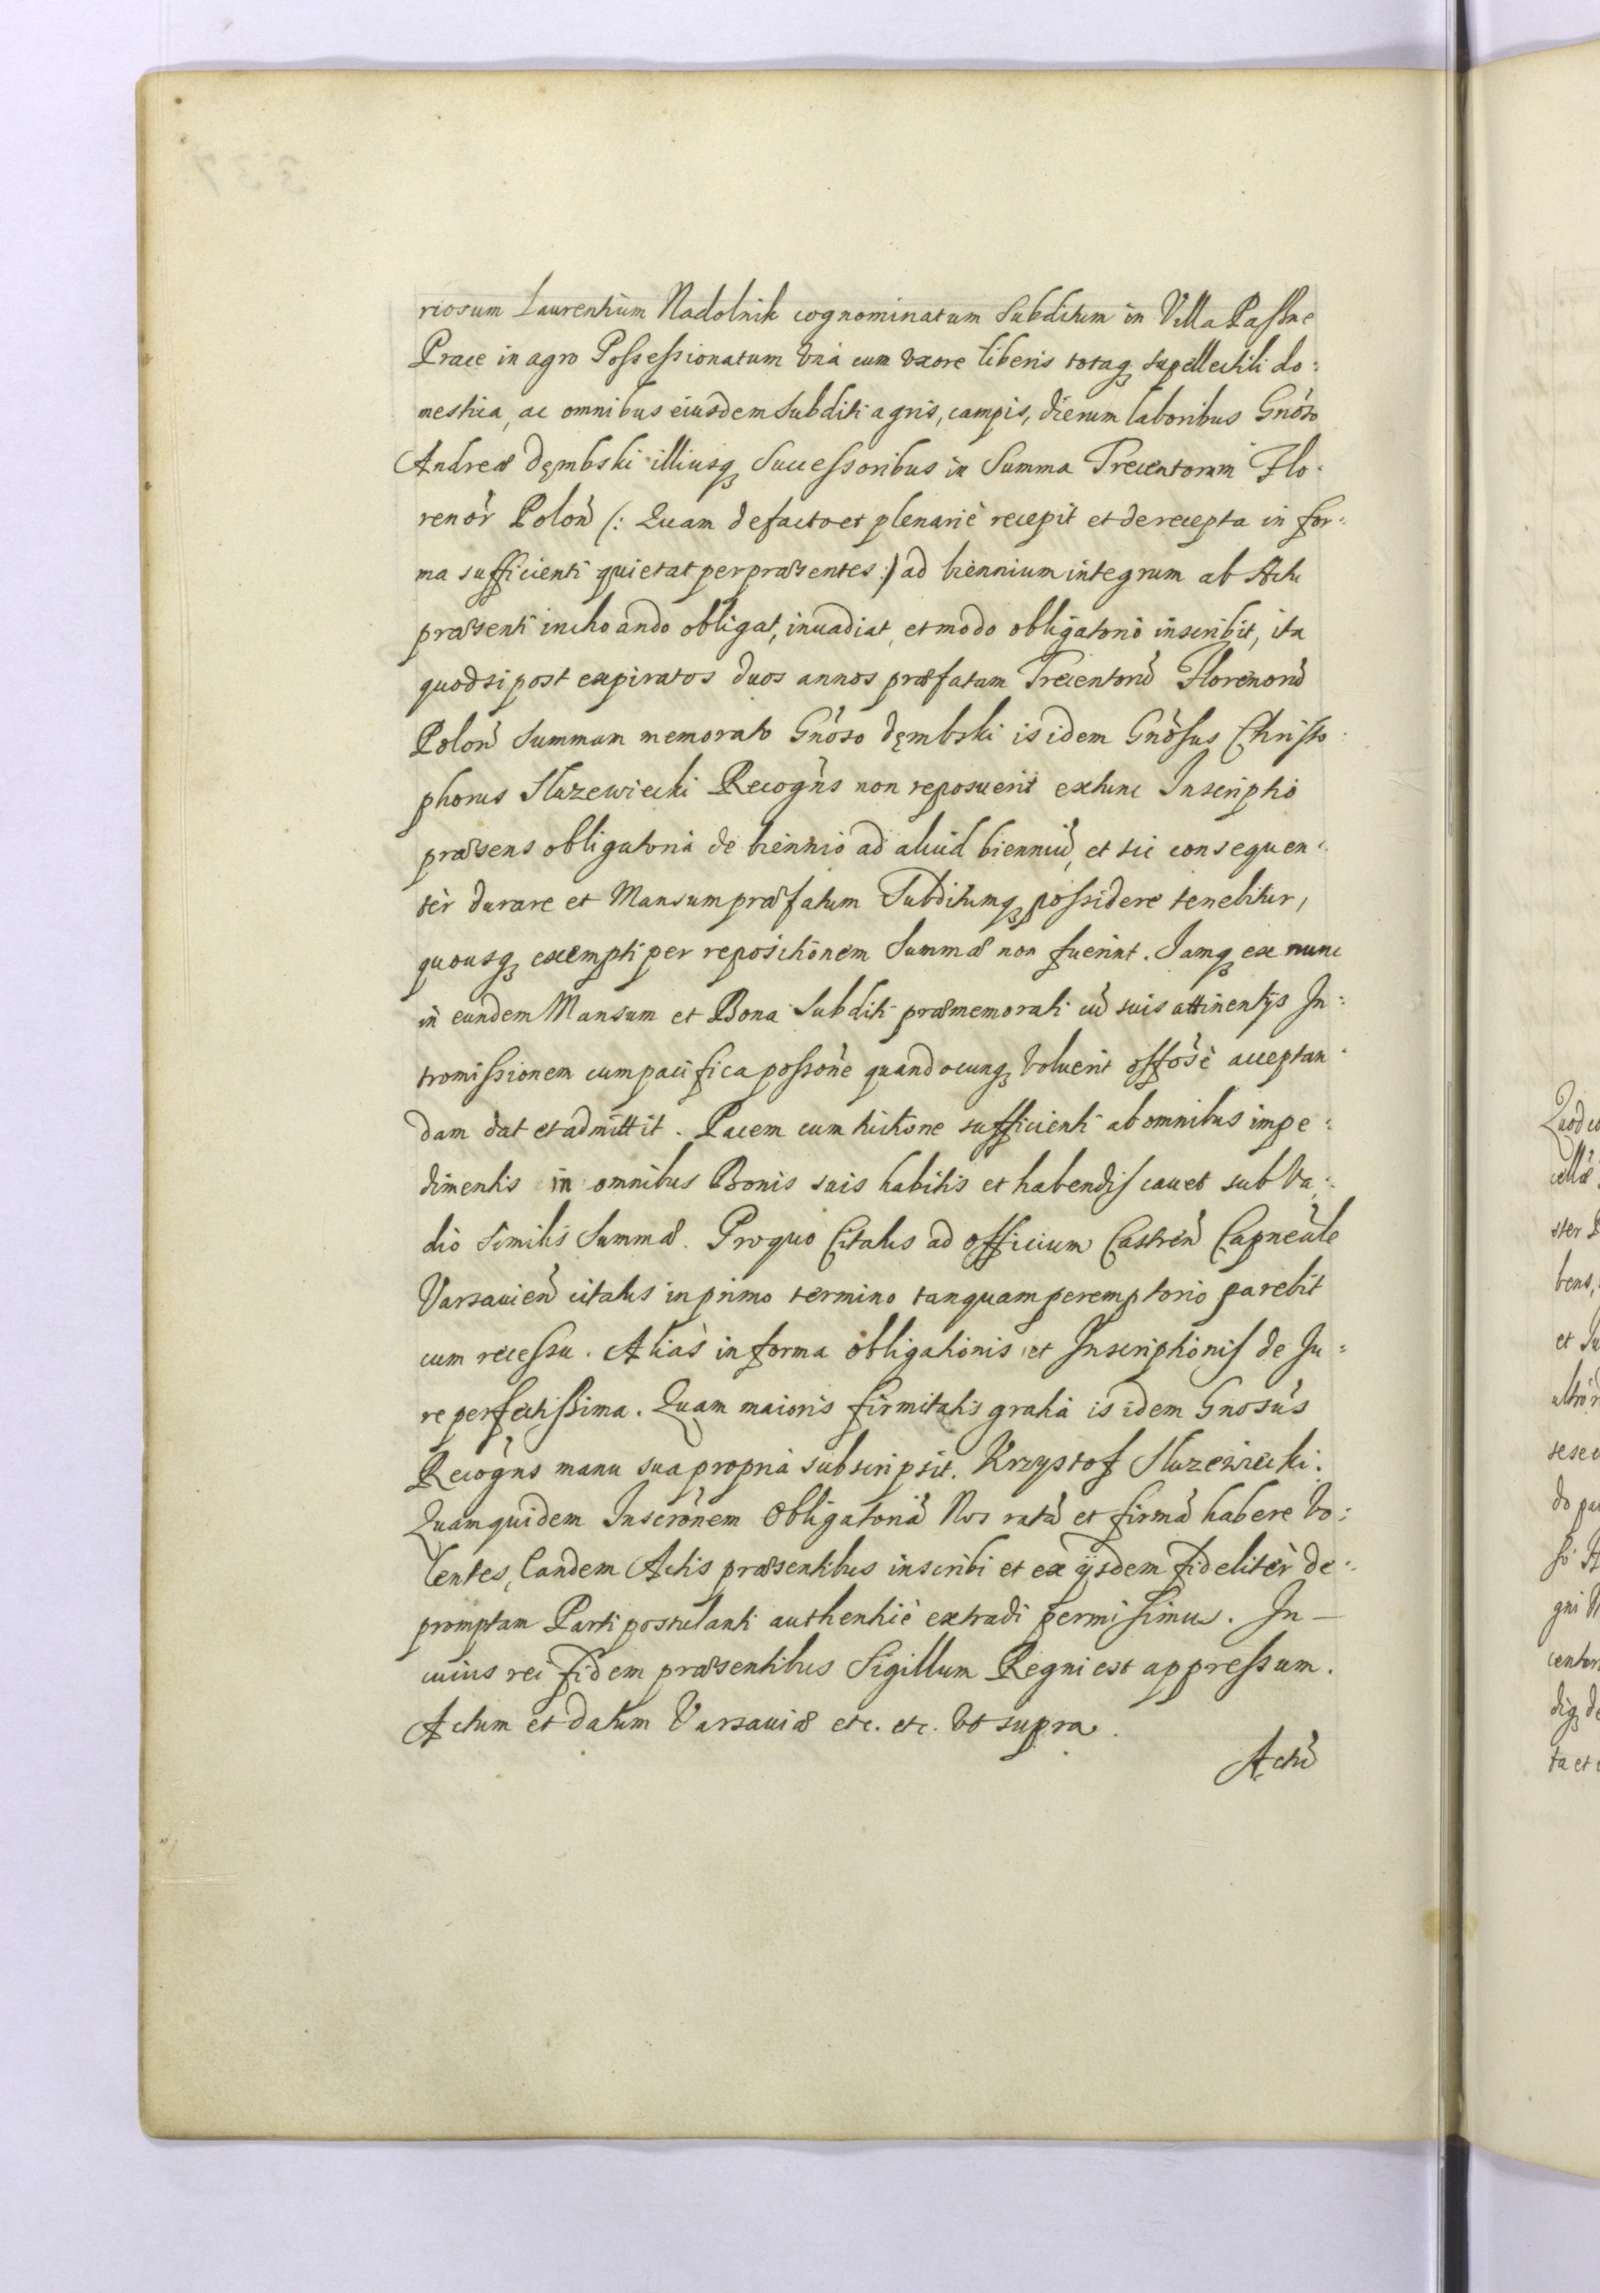 riosum Laurentium Nadolnik cognominatum Subditum in Villa Passne
Prace in agro Possessionatum Vnà cum vxore liberis totaq3 supellectili do:
mestica, ac omnibus eiusdem Subditi agris, campis, dierum laboribus Gnõso
Andreæ Dęmbski illiusq3 Successoribus in Summa Trecentorum Flo:
renor̃ Polon̄ (: Quam de facto et plenariè recepit et de recepta in for:
ma sufficienti quietat per præsentes :) ad biennium integrum ab Actu
præsenti inchoando obligat, inuadiat, et modo obligatorio inscribit, ita
quod si post expiratos duos annos præfatam Trecentorū Florenorū
Polon̄ Summam memorato Gnõso Dęmbski is idem Gnõsus Christo:
phorus Sluzewiecki Recogn̄s non reposuerit extunc Inscriptio
præsens obligatoria de biennio ad aliud bienniū, et sic consequen:
tèr durare et Mansum præfatum Subditumq3 possidere tenebitur,
quousq3 exempti per repositionem Summæ non fuerint. Jamq3 ex nunc
in eundem Mansum et Bona Subditi præmemorati cū suis attinentijs In:
tromissionem cum pacifica possōne quandocunq3 voluerit offōsè acceptan:
dam dat et admittit. Pacem cum tuitione sufficienti ab omnibus impe:
dimentis in omnibus Bonis suis habitis et habendis cauet sub Va:
dio similis Summæ. Pro quo Citatus ad Officium Castren̄ Capneãle
Varsauien̄ citatus in primo termino tanquam peremptorio parebit
cum recessu. Aliàs in forma Obligationis et Inscriptionis de Ju:
re perfectissima. Quam maioris firmitatis gratia is idem Gnosũs
Recogn̄s manu sua propria subscripsit. Krzystof Sluzewiecki.
Quamquidem Inscrōnem Obligatoriā Nos ratā et firmā habere Vo:
lentes, Eandem Actis præsentibus inscribi et ex ijsdem fidelitèr de:
promptam Parti postulanti authenticè extradi permisimus. In —
cuius rei fidem præsentibus Sigillum Regni est appressum.
Actum et datum Varsauiæ etc. etc. Vt supra.
Actū